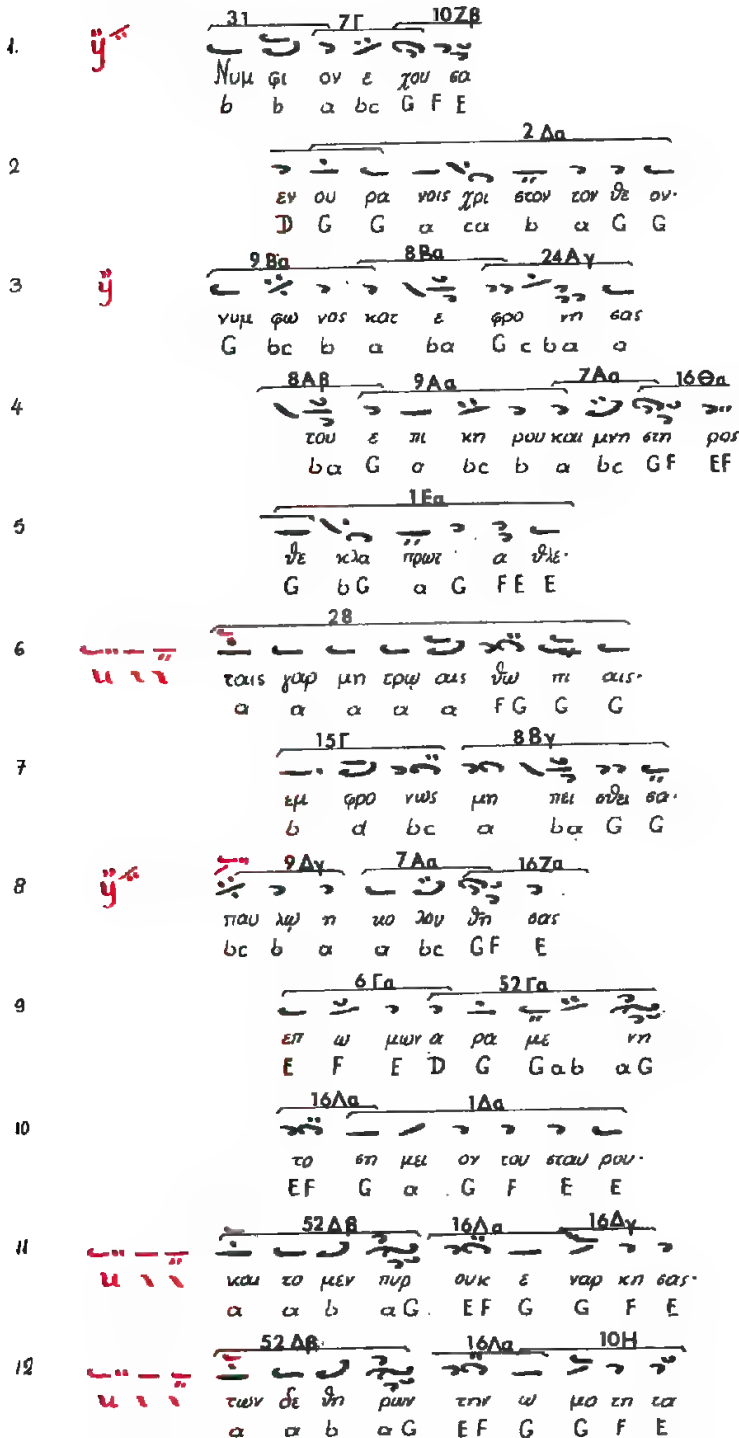 31 7Γ 10Ζβ
1. ÿ
Νυμ φι ον ε χου σα
b b a bc G F E
2Δα
2
εν ου ρα νοις χρι στον τον θε ον·
D G G a ca b a G G
9Βα 8Βα 24Αγ
3 ÿ
νυμ φω νος κατ ε φρο νη σας
G bc b a ba G c b a a
8Αβ 9Αα 7Αα 16Θα
4
του ε πι κη ρου και μνη στη ρος
ba G a bc b a bc GF EF
1Εα
5
θε κλα πρωτ α θλε·
G bG a G FE E
28
6
ταις γαρ μη τρω αις θω πι αις·
a a a a a FG G G
15Γ 8Βγ
7
εμ φρο νως μη πει σθει σα·
b d bc a ba G G
9Δγ 7Αα 16Ζα
8 ÿ
παυ λω η κο λου θη σας
bc b a a bc GF E
6Γα 52Γα
9
επ ω μων α ρα με νη
E F E D G Gab aG
16Λα 1Δα
10
το ση μει ον του σταυ ρου·
EF G a G F E E
52Δβ 16Λα 16Δγ
11
και το μεν πυρ ουκ ε ναρ κη σας·
a a b aG EF G G F E
52Δβ 16Λα 10Η
12
των δε θη ρων την ω μο τη τα
a a b aG EF G G F E